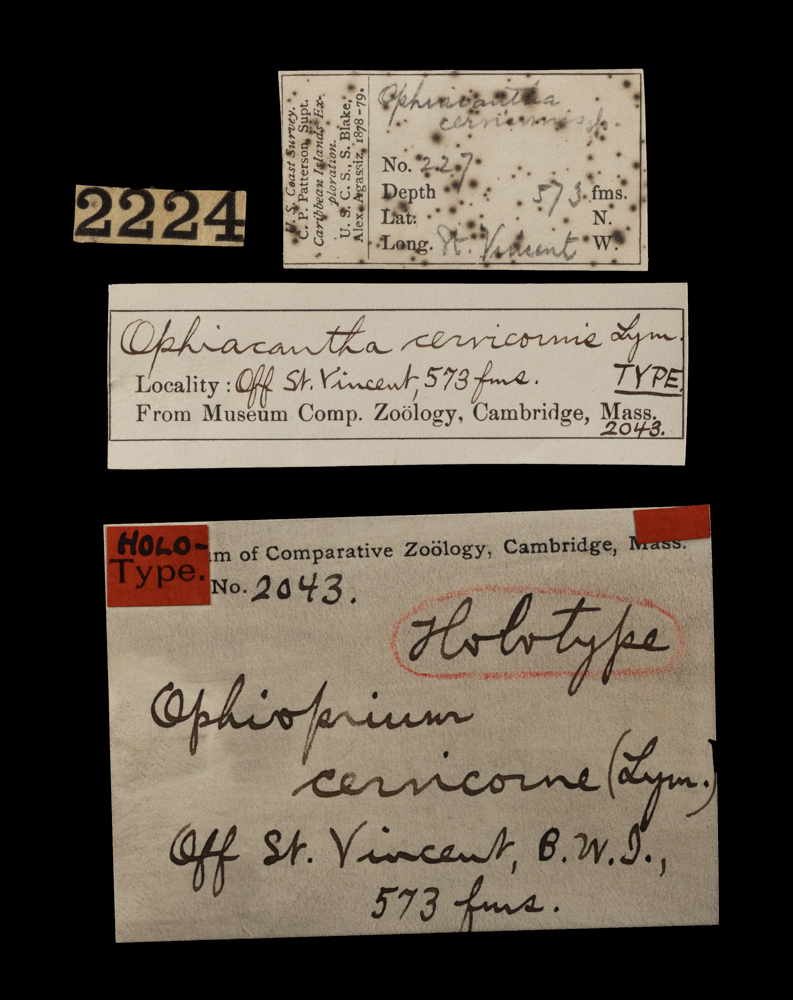 2224
U. S. Coast Survey.
C. P. Patterson, Supt.
Caribbean Islands Ex-
ploration.
U. S. C. S., S. Blake,
Alex. Agassiz, 1878-79.
Ophiacantha
cervicornis
No. 227
Depth 573 fms.
Lat: N.
Long. St. Vincent W.
Ophiacantha cervicornis Lym.
Locality: Off St. Vincent, 573 fms. TYPE.
From Museum Comp. Zoölogy, Cambridge, Mass.
2043.
HOLO-
Type.
um of Comparative Zoölogy, Cambridge, Mass.
No. 2043.
Holotype
Ophioprium
cervicorne (Lym.)
Off St. Vincent, B.W.I.,
573 fms.